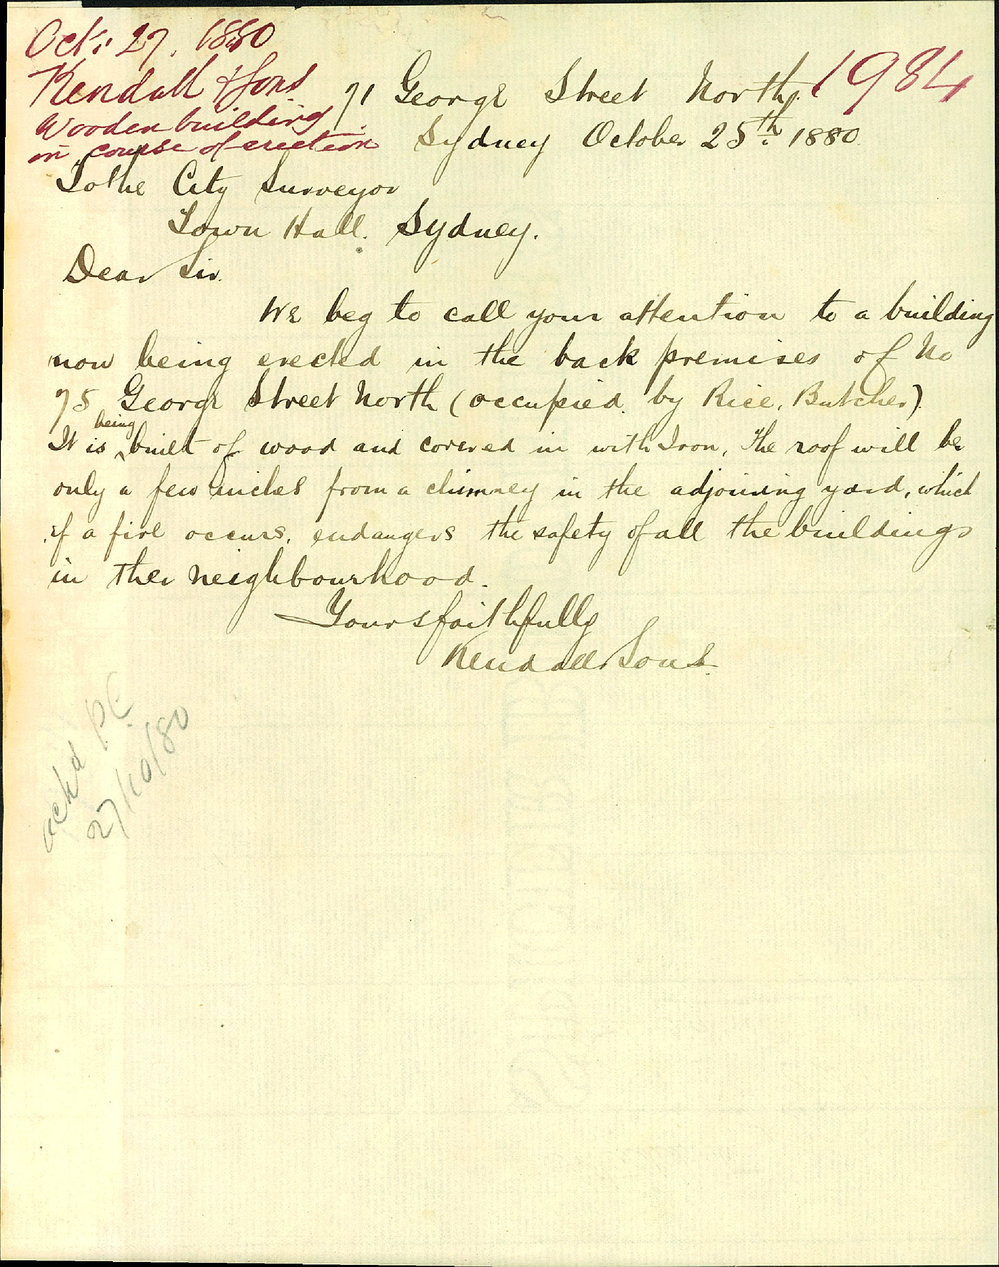 Oct: 27. 1880
Kendall & Sons
Wooden building
in course of erection
1984
71 George Street North.
Sydney October 25th. 1880.
To the City Surveyor
Town Hall. Sydney.
Dear Sir.
We beg to call your attention to a building
now being erected in the back premises of No
75 George Street North (occupied by Rice, Butcher).
It is being built of wood and covered in with Iron, The roof will be
only a few inches from a chimney in the adjoining yard, which
if a fire occurs, endangers the safety of all the buildings
in the neighbourhood.
Yours faithfully
Kendall & Sons.
ackd PC
27/10/80